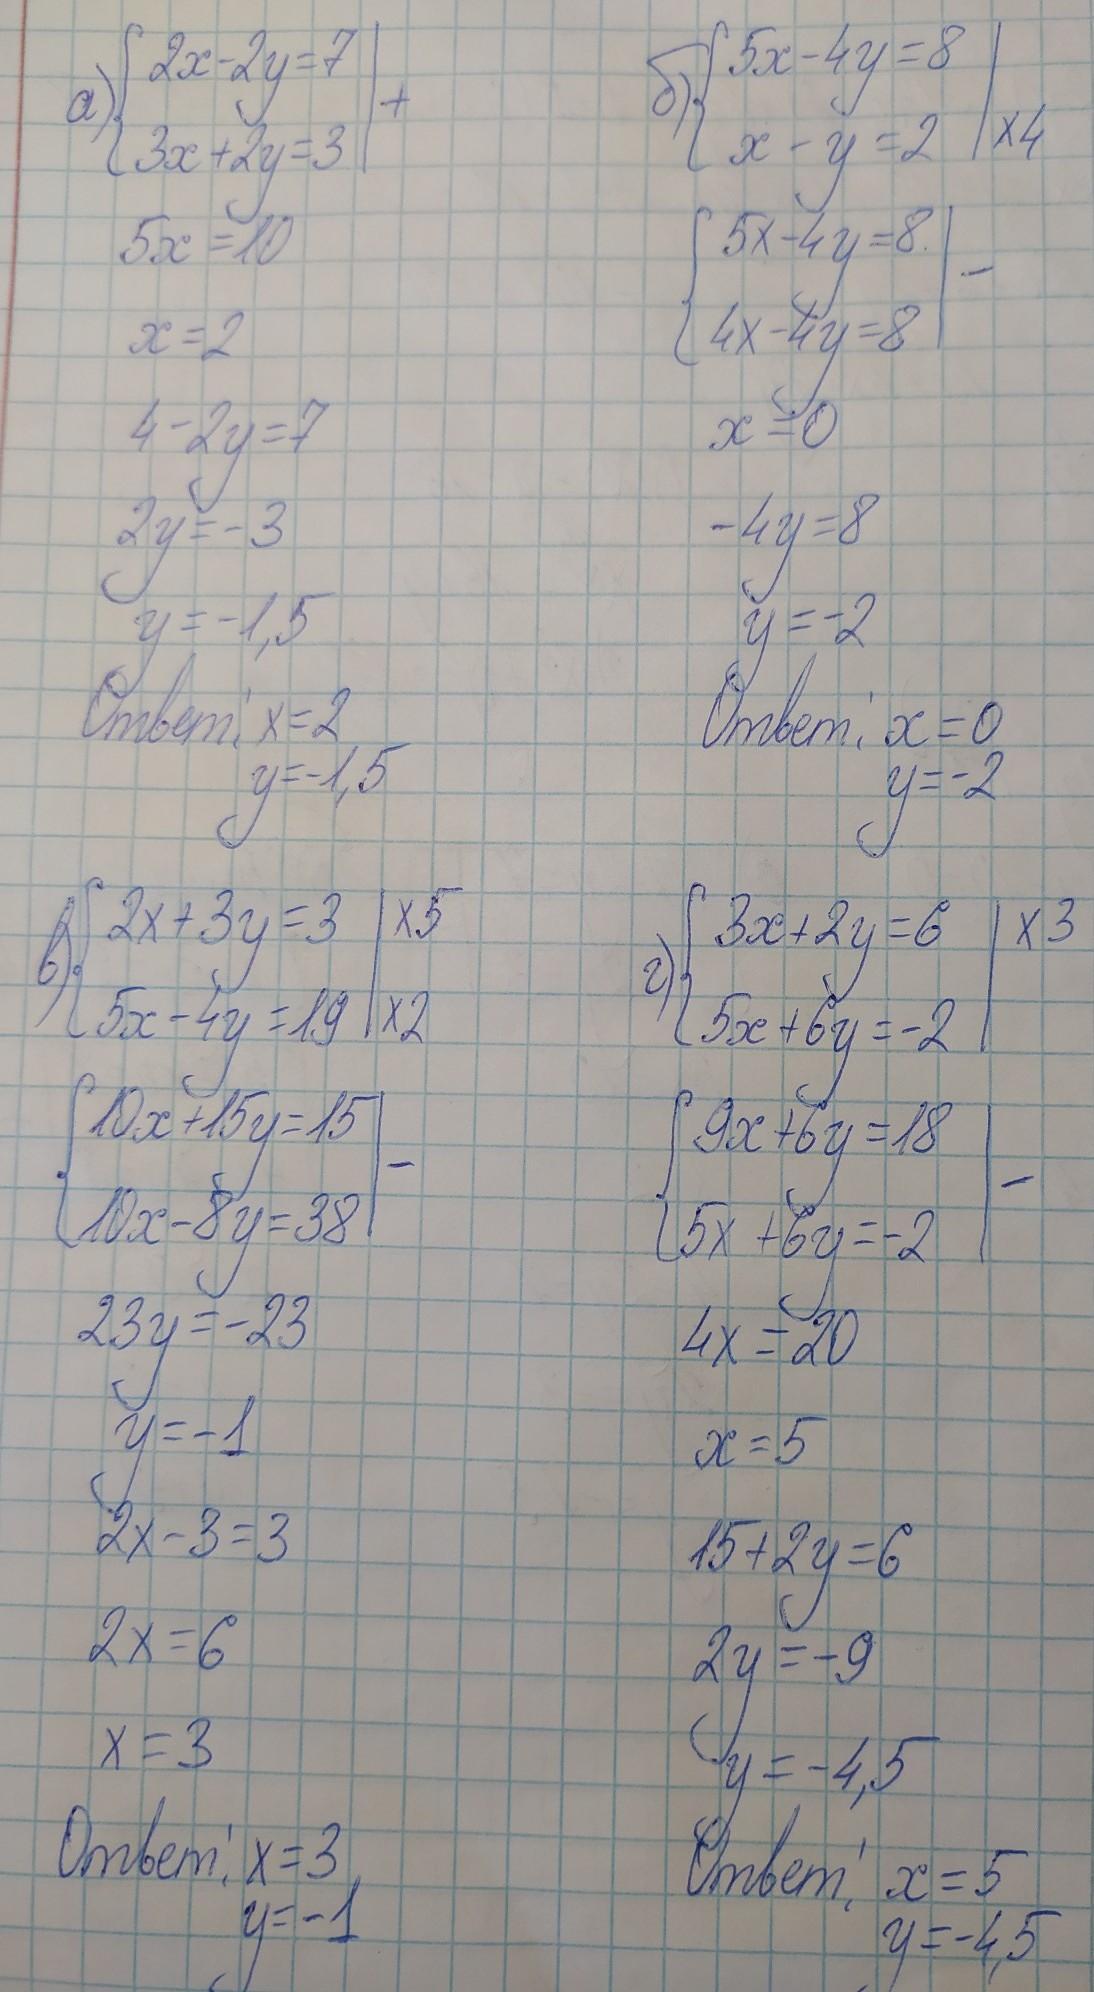 а) 2x-2y=7
3x+2y=3 +
5x=10
x=2
4-2y=7
2y=-3
y=-1,5
Ответ: x=2
y=-1,5
б) 5x-4y=8
x-y=2 ×4
5x-4y=8
4x-4y=8 -
x=0
-4y=8
y=-2
Ответ: x=0
y=-2
в) 2x+3y=3 ×5
5x-4y=19 ×2
10x+15y=15
10x-8y=38 -
23y=-23
y=-1
2x-3=3
2x=6
x=3
Ответ: x=3
y=-1
г) 3x+2y=6 ×3
5x+6y=-2
9x+6y=18
5x+6y=-2 -
4x=20
x=5
15+2y=6
2y=-9
y=-4,5
Ответ: x=5
y=-4,5